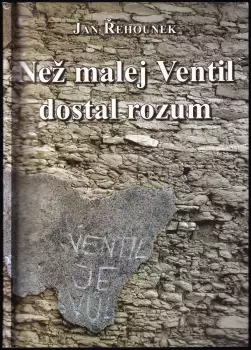 JAN ŘEHOUNEK
Než malej Ventil
dostal rozum
VENTIL
JE
VŮL